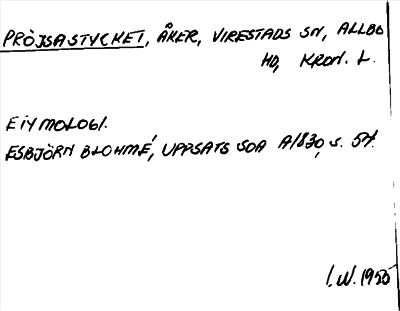 PRÖJSASTYCKET, ÅKER, VIRESTADS SN, ALLBO
HD, KRON. L.
ETYMOLOGI.
ESBJÖRN BLOHMÉ, UPPSATS SOA A1830, s. 54.
I.W. 1950